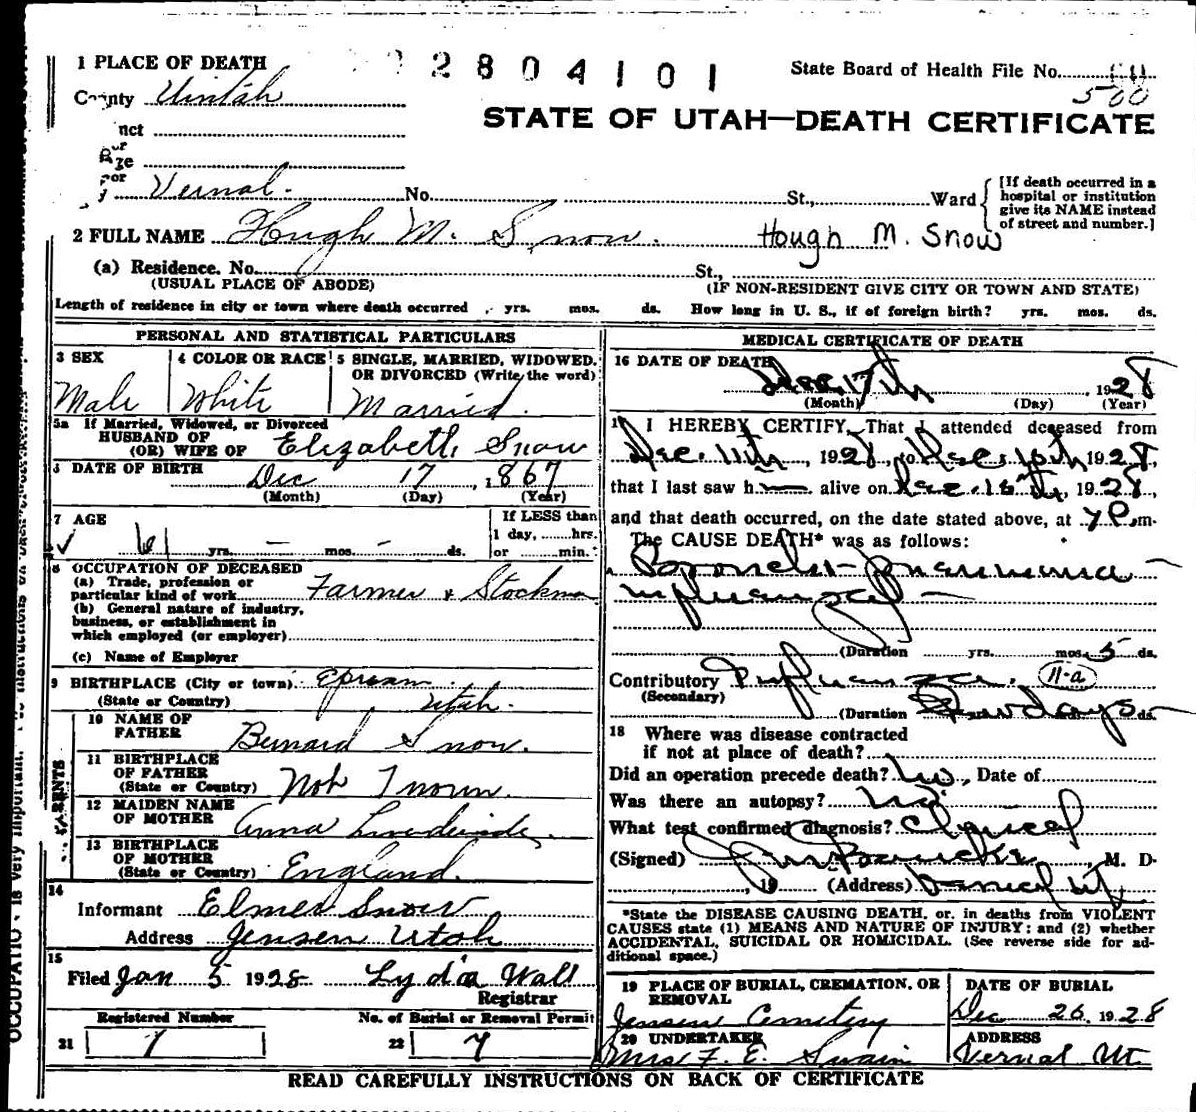 1 PLACE OF DEATH
2 8 0 4 1 0 1
State Board of Health File No.
500
County Uintah
STATE OF UTAH—DEATH CERTIFICATE
Vernal. No. St., Ward
[If death occurred in a hospital or institution give its NAME instead of street and number.]
2 FULL NAME Hugh M. Snow. Hough M. Snow
(a) Residence. No. St.,
(USUAL PLACE OF ABODE) (IF NON-RESIDENT GIVE CITY OR TOWN AND STATE)
Length of residence in city or town where death occurred yrs. mos. ds. How long in U. S., if of foreign birth? yrs. mos. ds.
PERSONAL AND STATISTICAL PARTICULARS
3 SEX
Male
4 COLOR OR RACE
White
5 SINGLE, MARRIED, WIDOWED, OR DIVORCED (Write the word)
Married.
5a If Married, Widowed, or Divorced
HUSBAND OF
(OR) WIFE OF Elizabeth Snow
DATE OF BIRTH Dec 17, 1867
(Month) (Day) (Year)
7 AGE
61 yrs. — mos. — ds.
If LESS than
1 day, hrs.
or min.
8 OCCUPATION OF DECEASED
(a) Trade, profession or
particular kind of work Farmer & Stockman
(b) General nature of industry,
business, or establishment in
which employed (or employer)
(c) Name of Employer
9 BIRTHPLACE (City or town) Epriam
(State or Country) Utah.
PARENTS
10 NAME OF
FATHER Bernard Snow.
11 BIRTHPLACE
OF FATHER
(State or Country) Not Known.
12 MAIDEN NAME
OF MOTHER Anna
13 BIRTHPLACE
OF MOTHER
(State or Country) England.
14
Informant Elmer Snow
Address Jensen Utah
15
Filed Jan 5 1928 Lydia Wall
Registrar
Registered Number No. of Burial or Removal Permit
21 7 22 7
MEDICAL CERTIFICATE OF DEATH
16 DATE OF DEATH
Dec. 17th, 1928
(Month) (Day) (Year)
I HEREBY CERTIFY, That I attended deceased from
Dec. 11th, 1928, to Dec. 16th 1928,
that I last saw h alive on Dec. 16th, 1928,
and that death occurred, on the date stated above, at 7 P. m.
The CAUSE DEATH* was as follows:
Broncho-pneumonia
Influenza
(Duration yrs. mos. 5 ds.
Contributory Influenza. 11-a
(Secondary)
(Duration days ds.
18 Where was disease contracted
if not at place of death?
Did an operation precede death? No, Date of
Was there an autopsy? No
What test confirmed diagnosis? Clinical
(Signed) , M. D.
, 19 (Address) Vernal Ut.
*State the DISEASE CAUSING DEATH, or, in deaths from VIOLENT
CAUSES state (1) MEANS AND NATURE OF INJURY; and (2) whether
ACCIDENTAL, SUICIDAL OR HOMICIDAL. (See reverse side for ad-
ditional space.)
19 PLACE OF BURIAL, CREMATION, OR
REMOVAL
Jensen Cemetery
DATE OF BURIAL
Dec 26, 1928
20 UNDERTAKER
Mrs F. E. Swain
ADDRESS
Vernal Ut.
READ CAREFULLY INSTRUCTIONS ON BACK OF CERTIFICATE